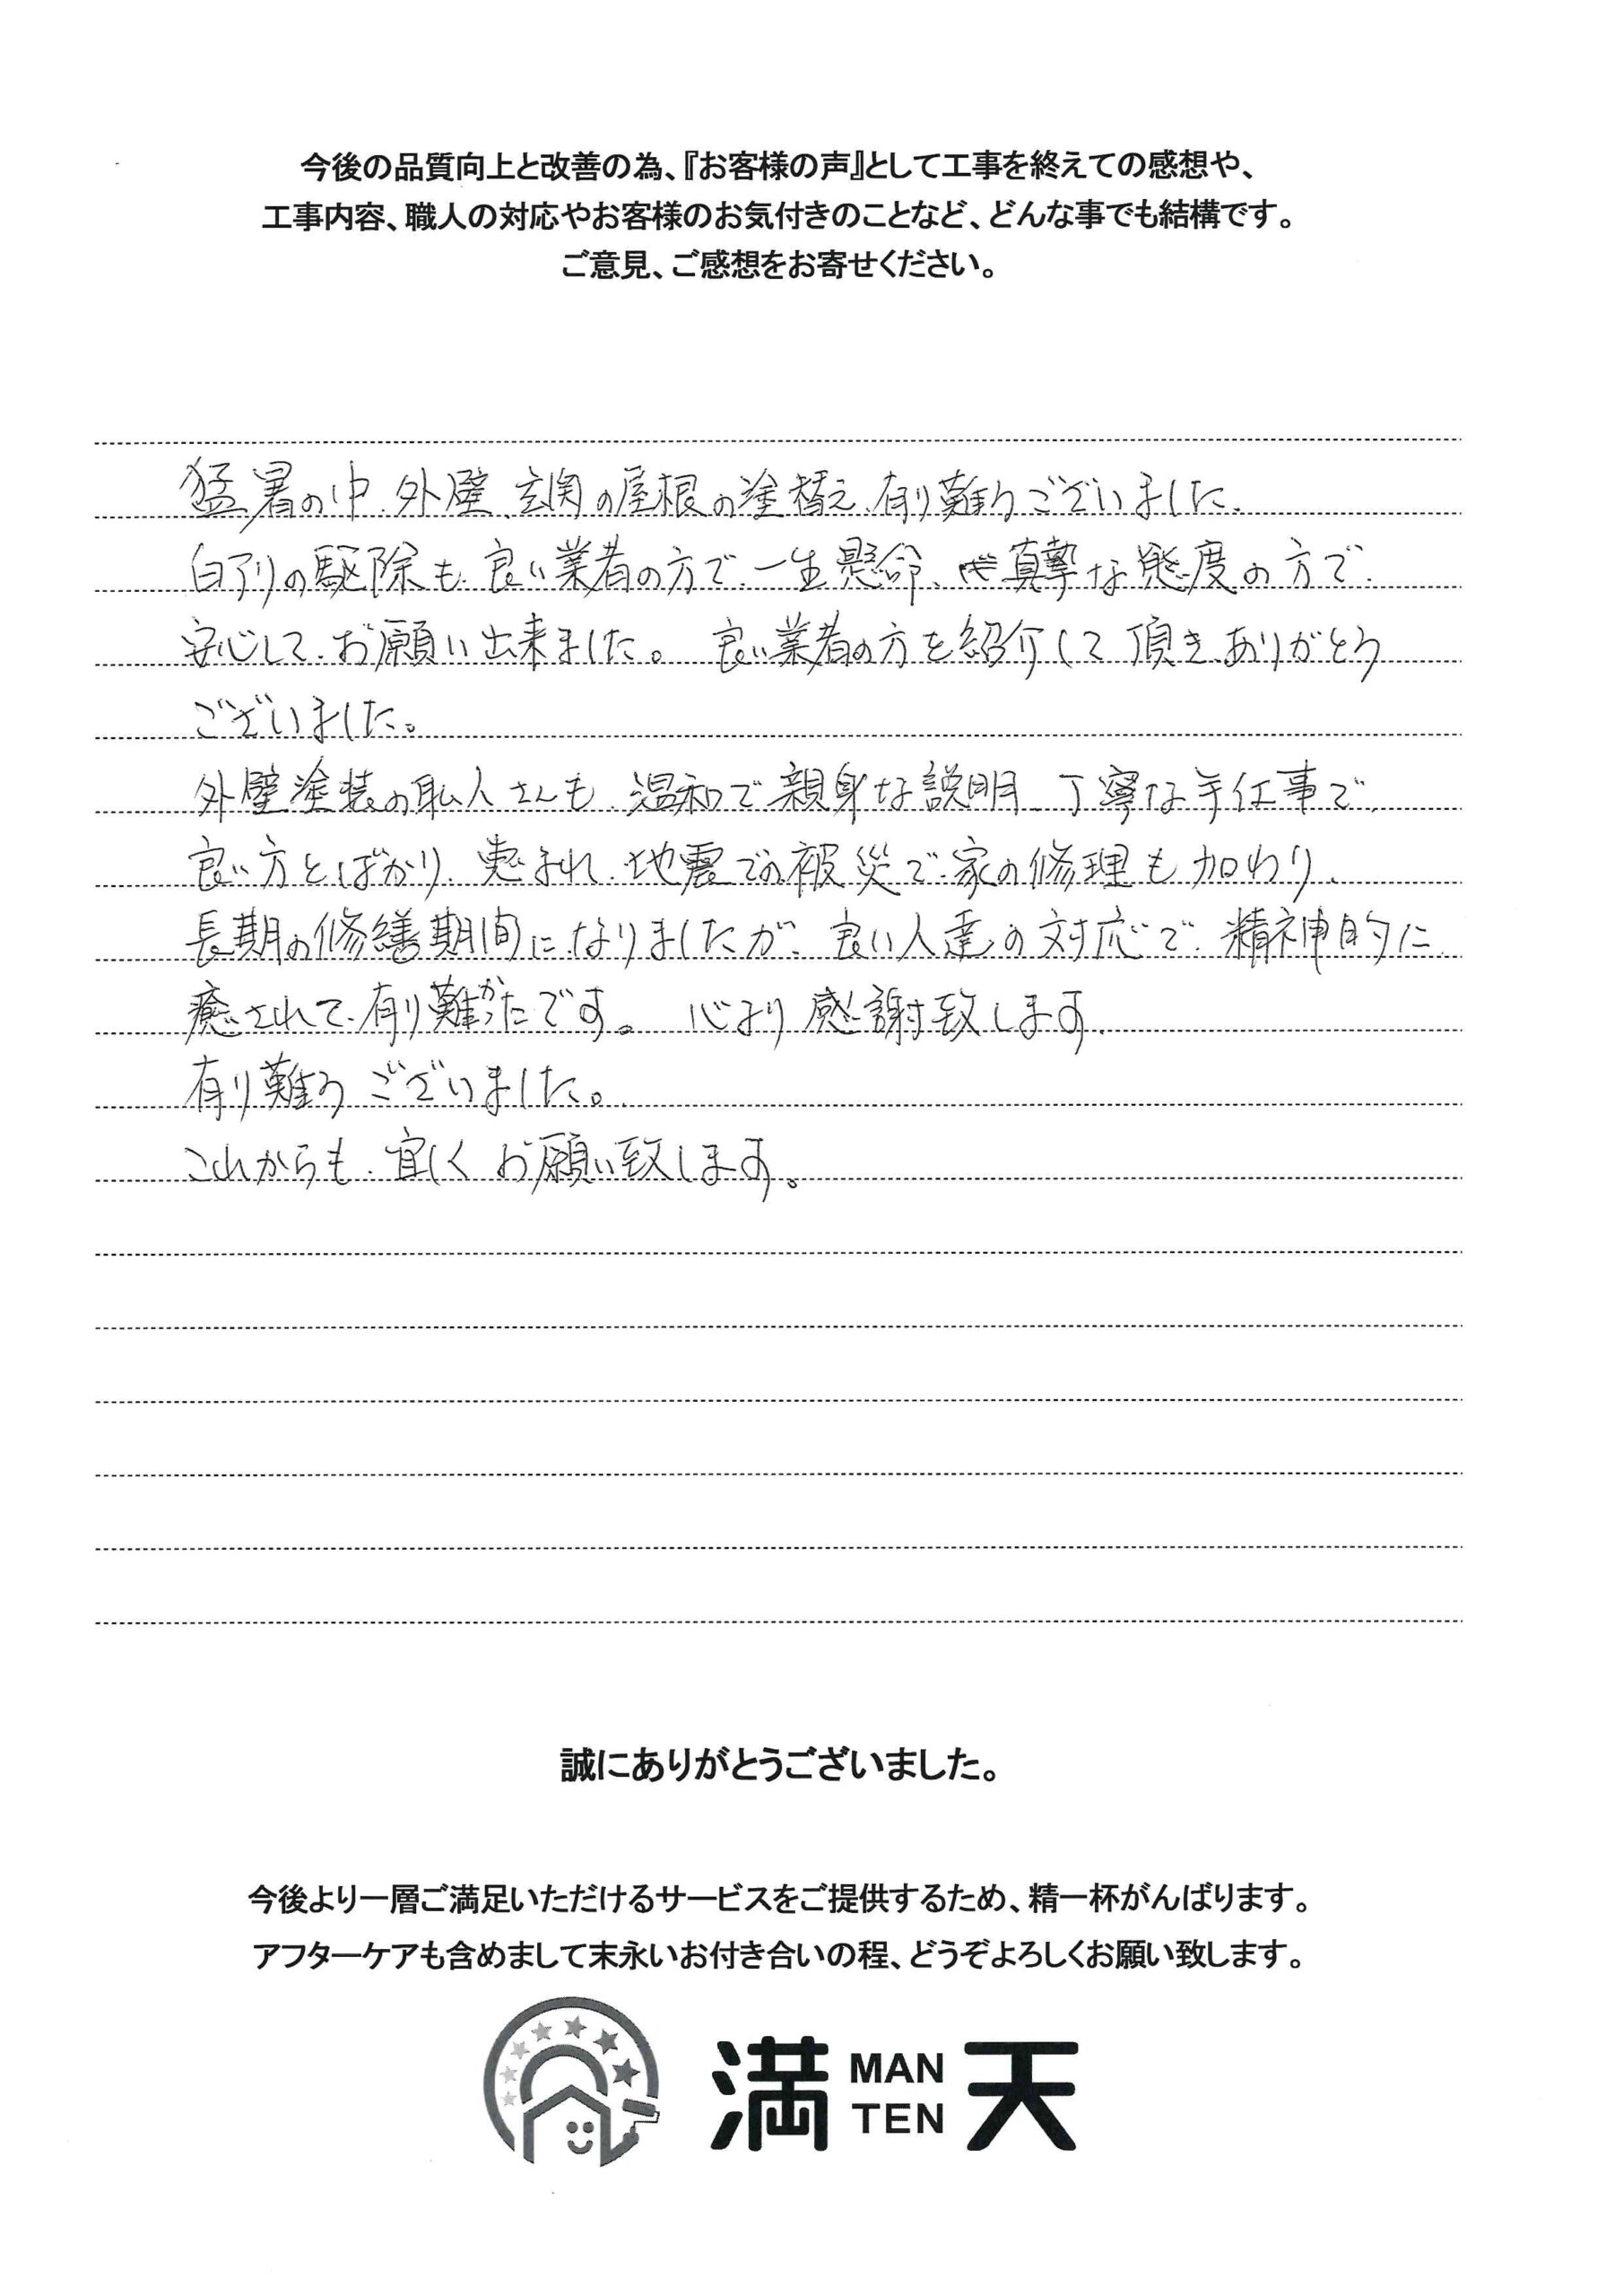 今後の品質向上と改善の為、『お客様の声』として工事を終えての感想や、
工事内容、職人の対応やお客様のお気付きのことなど、どんな事でも結構です。
ご意見、ご感想をお寄せください。
猛暑の中、外壁、玄関の屋根の塗替え、有り難うございました。
白アリの駆除も、良い業者の方で、一生懸命、真摯な態度の方で、
安心して、お願い出来ました。 良い業者の方を紹介して頂き、ありがとう
ございました。
外壁塗装の職人さんも、温和で親身な説明、丁寧な手仕事で、
良い方とばかり、恵まれ、地震での被災で、家の修理も加わり、
長期の修繕期間に、なりましたが、良い人達の対応で、精神的に、
癒されて、有り難かったです。 心より感謝致します。
有り難うございました。
これからも、宜しくお願い致します。
誠にありがとうございました。
今後より一層ご満足いただけるサービスをご提供するため、精一杯がんばります。
アフターケアも含めまして末永いお付き合いの程、どうぞよろしくお願い致します。
満 MAN TEN 天